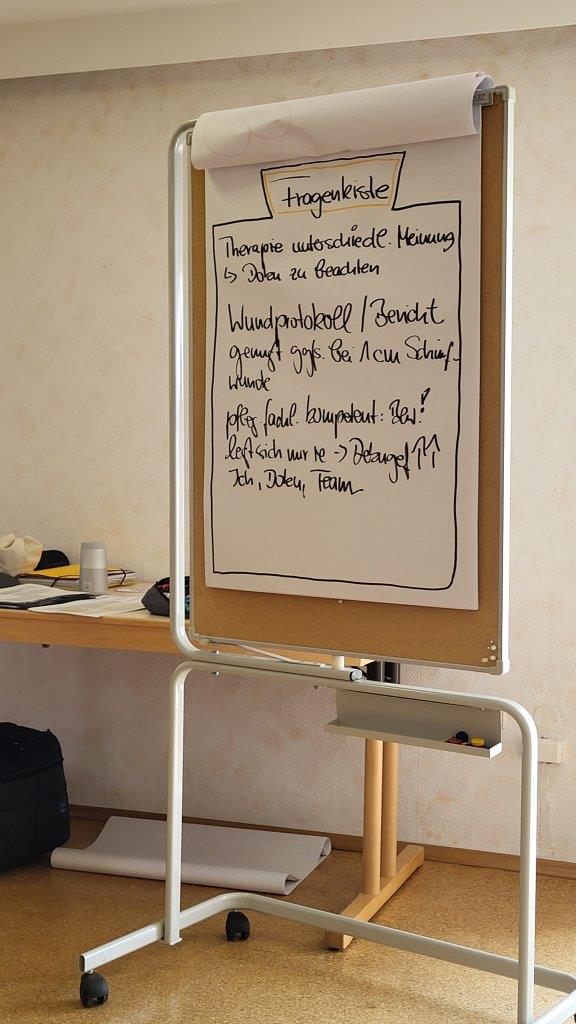 Fragenkiste
Therapie unterschiedl. Meinung
↳ Doku zu beachten
Wundprotokoll / Bericht
genügt ggfs. bei 1cm Schürf-
wunde
pfleg. fachl. kompetent: Bew!
legt sich nur re →
Ich, Team